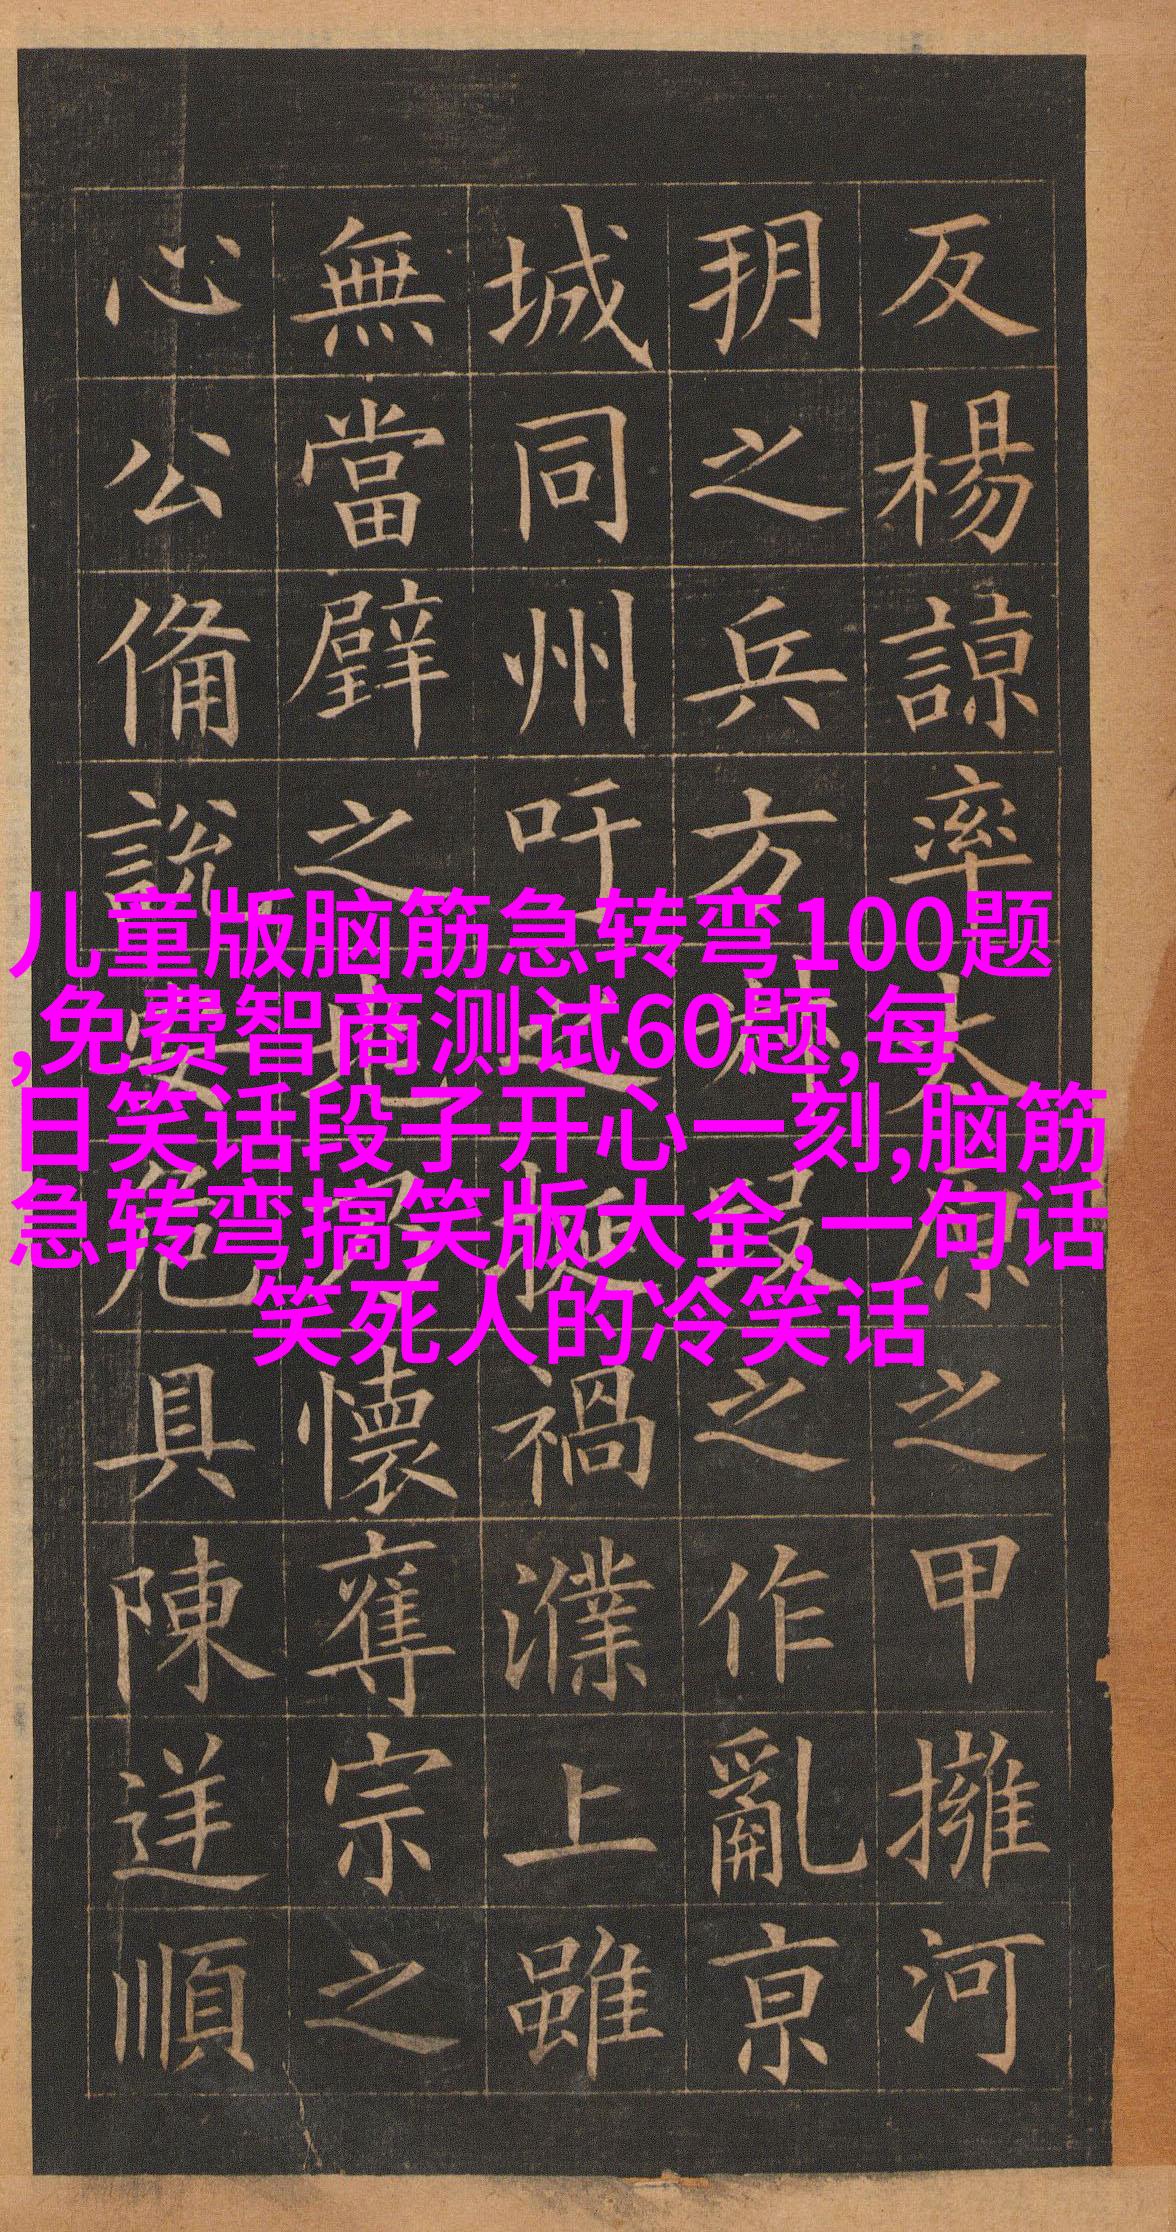 反楊諒率太原之甲擁河
玥之兵方之作亂亰
城同州吁之挻禍濮上雖
無當璧之懷奪宗之
心公俻說安危具陳逆順
儿童版脑筋急转弯100题
,免费智商测试60题,每
日笑话段子开心一刻,脑筋
急转弯搞笑版大全,一句话
笑死人的冷笑话